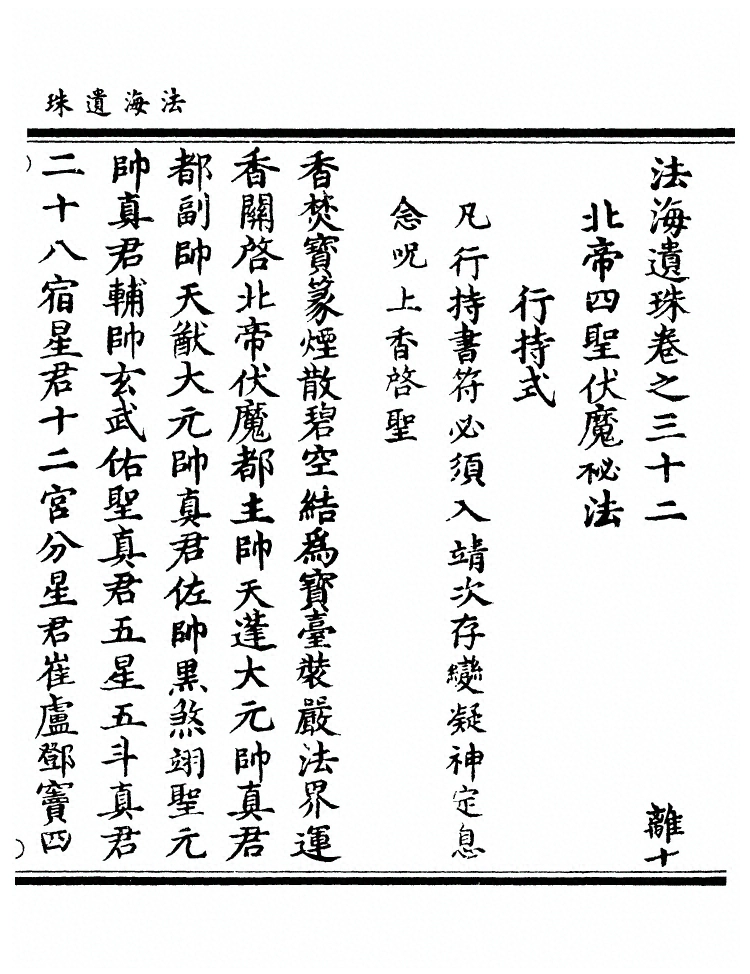 法海遺珠
法海遺珠卷之三十二
離十
北帝四聖伏魔秘法
行持式
凡行持書符必須入靖次存變凝神定息
念呪上香啓聖
香焚寶篆煙散碧空結爲寶臺裝嚴法界運
香關啓北帝伏魔都主帥天蓬大元帥真君
都副帥天猷大元帥真君佐帥黑煞翊聖元
帥真君輔帥玄武佑聖真君五星五斗真君
二十八宿星君十二宮分星君崔盧鄧竇四